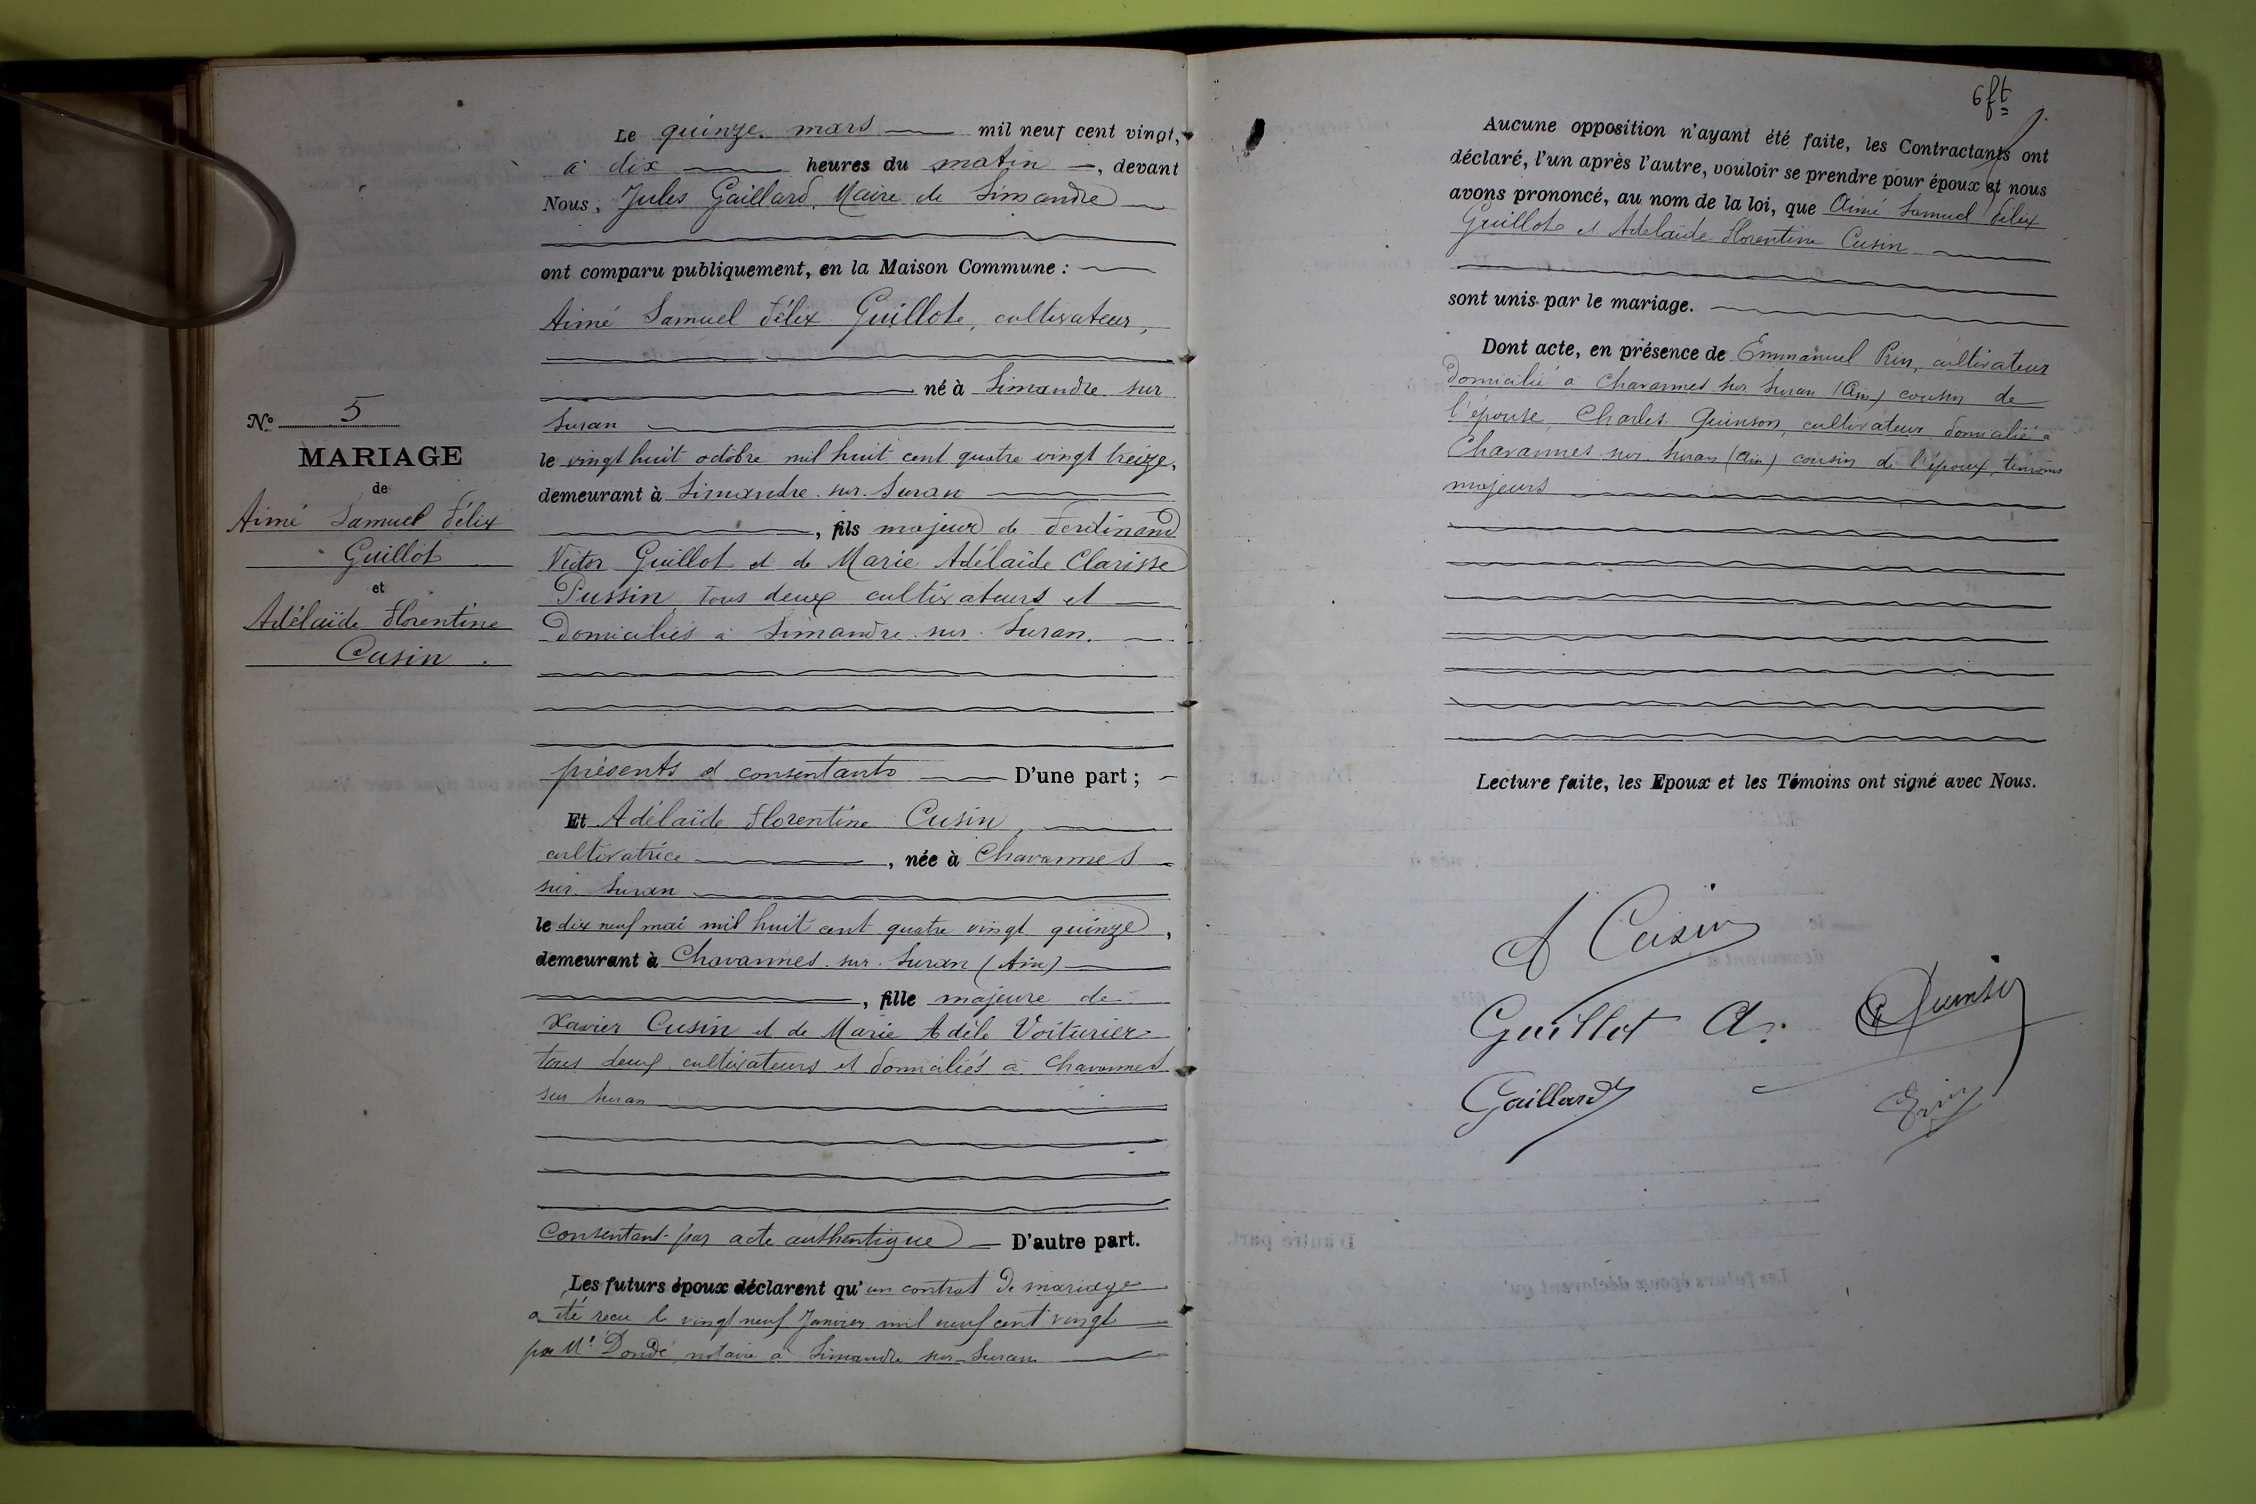 Le quinze mars mil neuf cent vingt,
à dix heures du matin, devant
Nous, Jules Gaillard, Maire de Simandre
ont comparu publiquement, en la Maison Commune :
Aimé Samuel Félix Guillot, cultivateur,
né à Simandre sur
Suran
le vingt huit octobre mil huit cent quatre vingt treize,
demeurant à Simandre sur Suran
, fils majeur de Ferdinand
Victor Guillot et de Marie Adélaïde Clarisse
Pussin tous deux cultivateurs et
domiciliés à Simandre sur Suran.
présents et consentants D'une part ;
Et Adélaïde Florentine Cusin,
cultivatrice, née à Chavannes
sur Suran
le dix neuf mai mil huit cent quatre vingt quinze,
demeurant à Chavannes sur Suran (Ain)
, fille majeure de
Xavier Cusin et de Marie Adèle Voiturier
tous deux cultivateurs et domiciliés à Chavannes
sur Suran
Consentant par acte authentique D'autre part.
Les futurs époux déclarent qu'un contrat de mariage
a été recu le vingt neuf Janvier mil neuf cent vingt
par Me Dondé, notaire à Simandre sur Suran
No 5
MARIAGE
de
Aimé Samuel Félix
Guillot
et
Adélaïde Florentine
Cusin.
6 ft
Aucune opposition n'ayant été faite, les Contractants ont
déclaré, l'un après l'autre, vouloir se prendre pour époux et nous
avons prononcé, au nom de la loi, que Aimé Samuel Félix
Guillot et Adélaïde Florentine Cusin
sont unis par le mariage.
Dont acte, en présence de Emmanuel Prin, cultivateur
domicilié à Chavannes sur Suran (Ain) cousin de
l'épouse, Charles Guinson, cultivateur domicilié à
Chavannes sur Suran (Ain) cousin de l'époux, témoins
majeurs
Lecture faite, les Epoux et les Témoins ont signé avec Nous.
A Cusin
Guillot A.
Gaillard